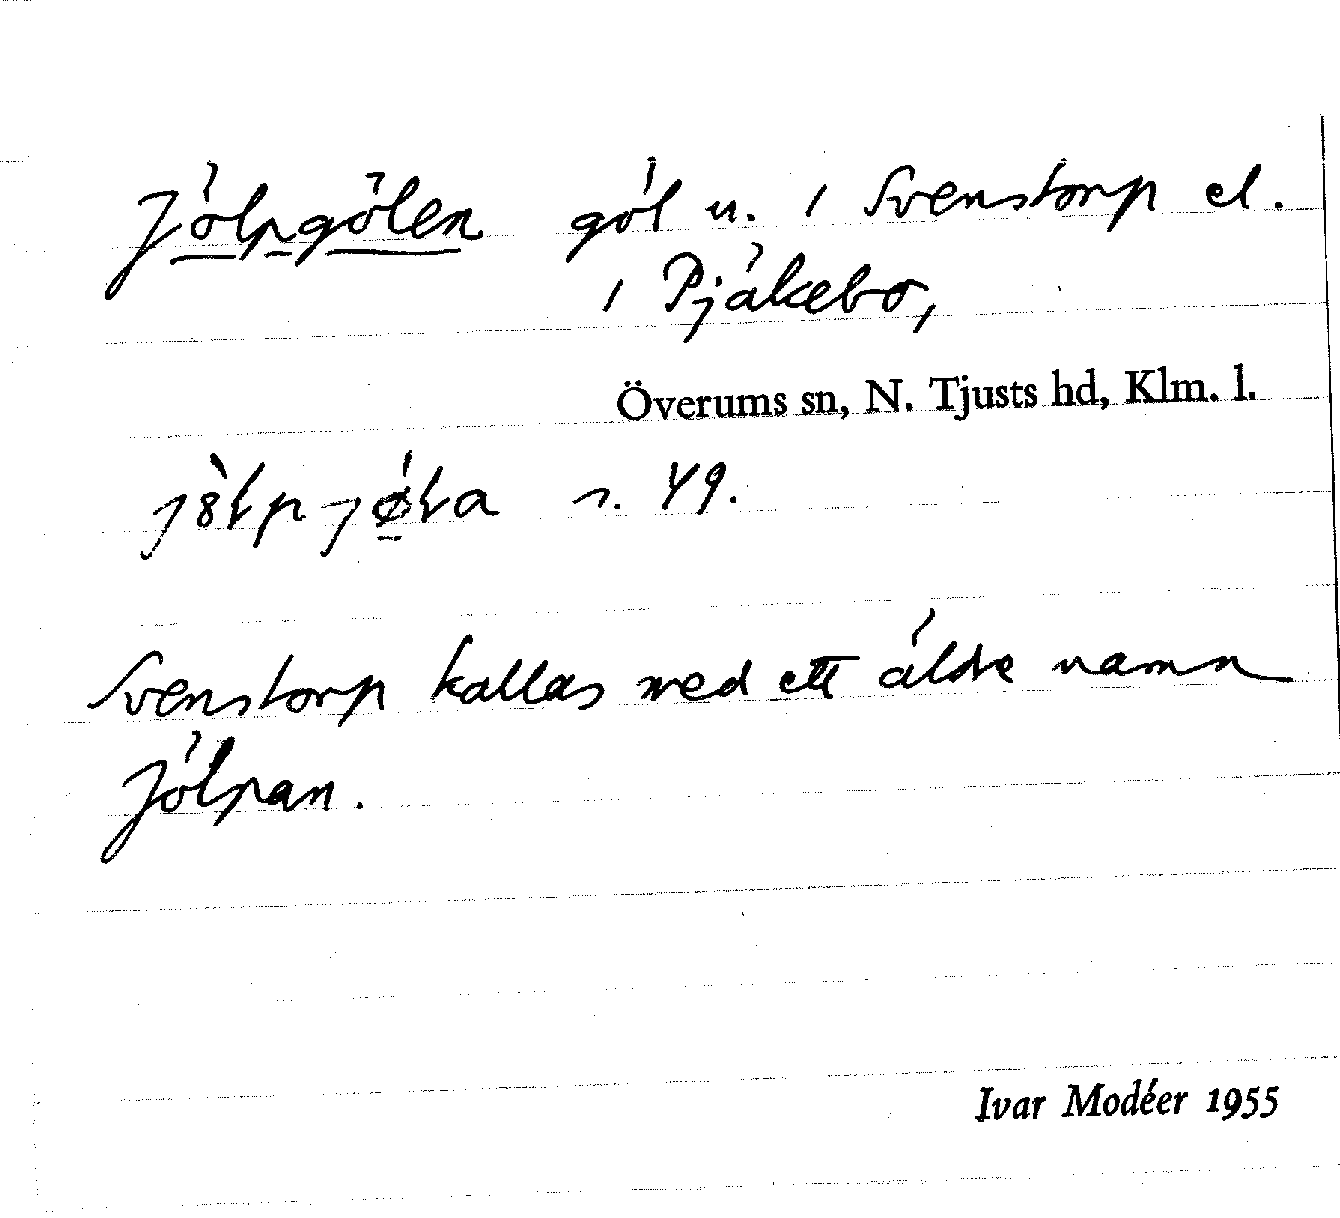 Jölpgölen göl u. i Svenstorp el.
i Pjäkebo,
Överums sn, N. Tjusts hd, Klm. l.
s. 49.
Svenstorp kallas med ett äldre namn
Jölpan.
Ivar Modéer 1955